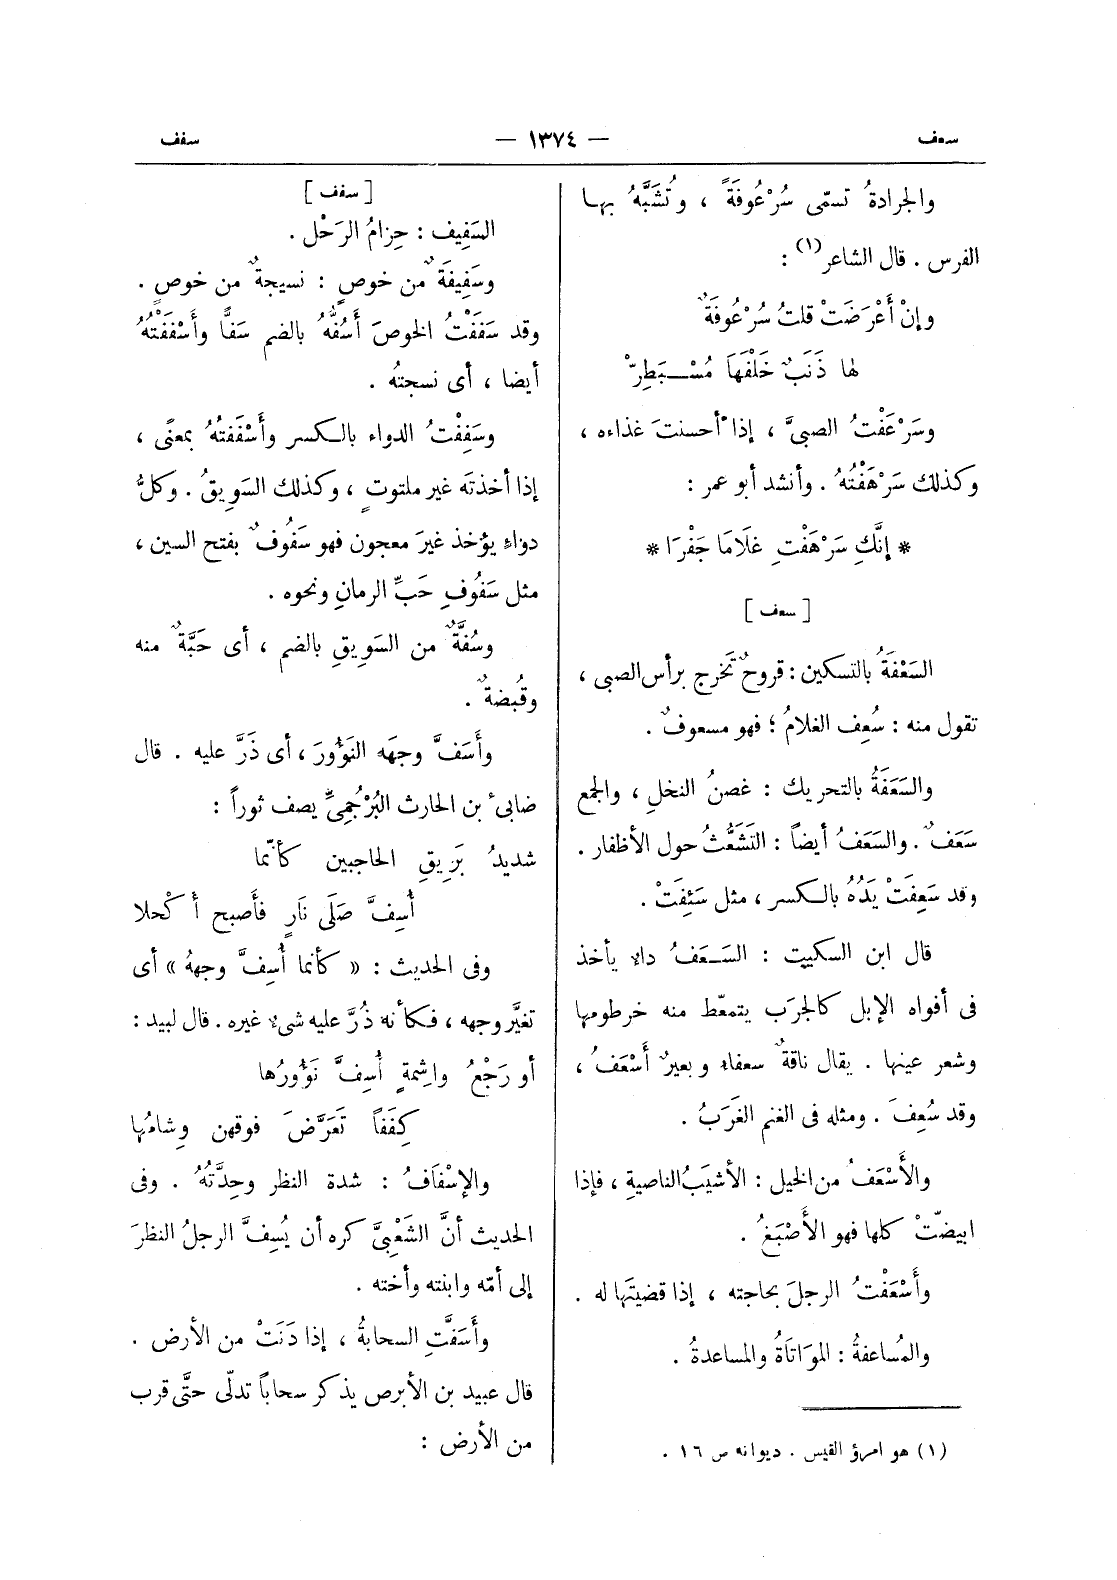 سعف — ١٣٧٤ — سفف
والجرادةُ تسمّى سُرْعُوفَةً ، وتُشَبَّهُ بها
الفرس . قال الشاعر(١) :
وإنْ أَعْرَضَتْ قلتُ سُرْعُوفَةٌ
لها ذَنَبٌ خَلْفَهَا مُسْبَطِرّْ
وسَرْعَفْتُ الصبىَّ ، إذا أحسنتَ غذاءه ،
وكذلك سَرْهَفْتُهُ . وأنشد أبو عمر :
* إنَّكِ سَرْهَفْتِ غلَامَا جَفْرَا *
[ سعف ]
السَعْفَةُ بالتسكين : قروحٌ تَخرج برأس الصبى ،
تقول منه : سُعِف الغلامُ ؛ فهو مسعوفٌ .
والسَعَفَةُ بالتحريك : غصنُ النخلِ ، والجمع
سَعَفٌ . والسَعَفُ أيضاً : التَشَعُّثُ حول الأظفار .
وقد سَعِفَتْ يَدُهُ بالكسر ، مثل سَئِفَتْ .
قال ابن السكيت : السَعَفُ داء يأخذ
فى أفواه الإبل كالجرَب يتمعّط منه خرطومها
وشعر عينها . يقال ناقةٌ سعفاء وبعيرٌ أَسْعَفُ ،
وقد سُعِفَ . ومثله فى الغنم الغَرَبُ .
والأَسْعَفُ من الخيل : الأشيَبُ الناصيةِ ، فإذا
ابيضّتْ كلها فهو الأَصْبَغُ .
وأَسْعَفْتُ الرجلَ بحاجته ، إذا قضيتَها له .
والمُساعفةُ : المؤاتَاةُ والمساعدةُ .
(١) هو امرؤ القيس . ديوانه ص ١٦ .
[ سفف ]
السَفِيف : حِزامُ الرَحْل .
وسَفِيفَةٌ من خوصٍ : نسيجةٌ من خوصٍ .
وقد سَفَفْتُ الخوصَ أَسُفُّهُ بالضم سَفًّا وأَسْفَفْتُهُ
أيضا ، أى نسجتُه .
وسَفِفْتُ الدواء بالكسر وأَسْفَفتُهُ بمعنًى ،
إذا أخذتَه غير ملتوتٍ ، وكذلك السَوِيقُ . وكلُّ
دواءِ يؤخذ غيرَ معجون فهو سَفُوفٌ بفتح السين ،
مثل سَفُوفِ حَبِّ الرمانِ ونحوه .
وسُفَّةٌ من السَوِيقِ بالضم ، أى حَبَّةٌ منه
وقُبضةٌ .
وأَسَفَّ وجهَه النَؤُورَ ، أى ذَرَّ عليه . قال
ضابئ بن الحارث البُرْجُمِىُّ يصف ثوراً :
شديدُ بَرِيقِ الحاجبين كأنّما
أُسِفَّ صَلَى نَارٍ فأَصبح أَكْحلا
وفى الحديث : « كأنما أُسِفَّ وجههُ » أى
تغيَّر وجهه ، فكأنه ذُرَّ عليه شىء غيره . قال لبيد :
أو رَجْعُ واشِمةٍ أُسِفَّ نَؤُورُها
كِفَفاً تَعَرَّضَ فوقهن وِشامُها
والإسْفَافُ : شدة النظر وحِدَّتُهُ . وفى
الحديث أنَّ الشَعْبِىَّ كره أن يُسِفَّ الرجلُ النظرَ
إلى أمّه وابنته وأخته .
وأَسَفَّتِ السحابةُ ، إذا دَنَتْ من الأرض .
قال عبيد بن الأبرص يذكر سحاباً تدلّى حتَّى قرب
من الأرض :